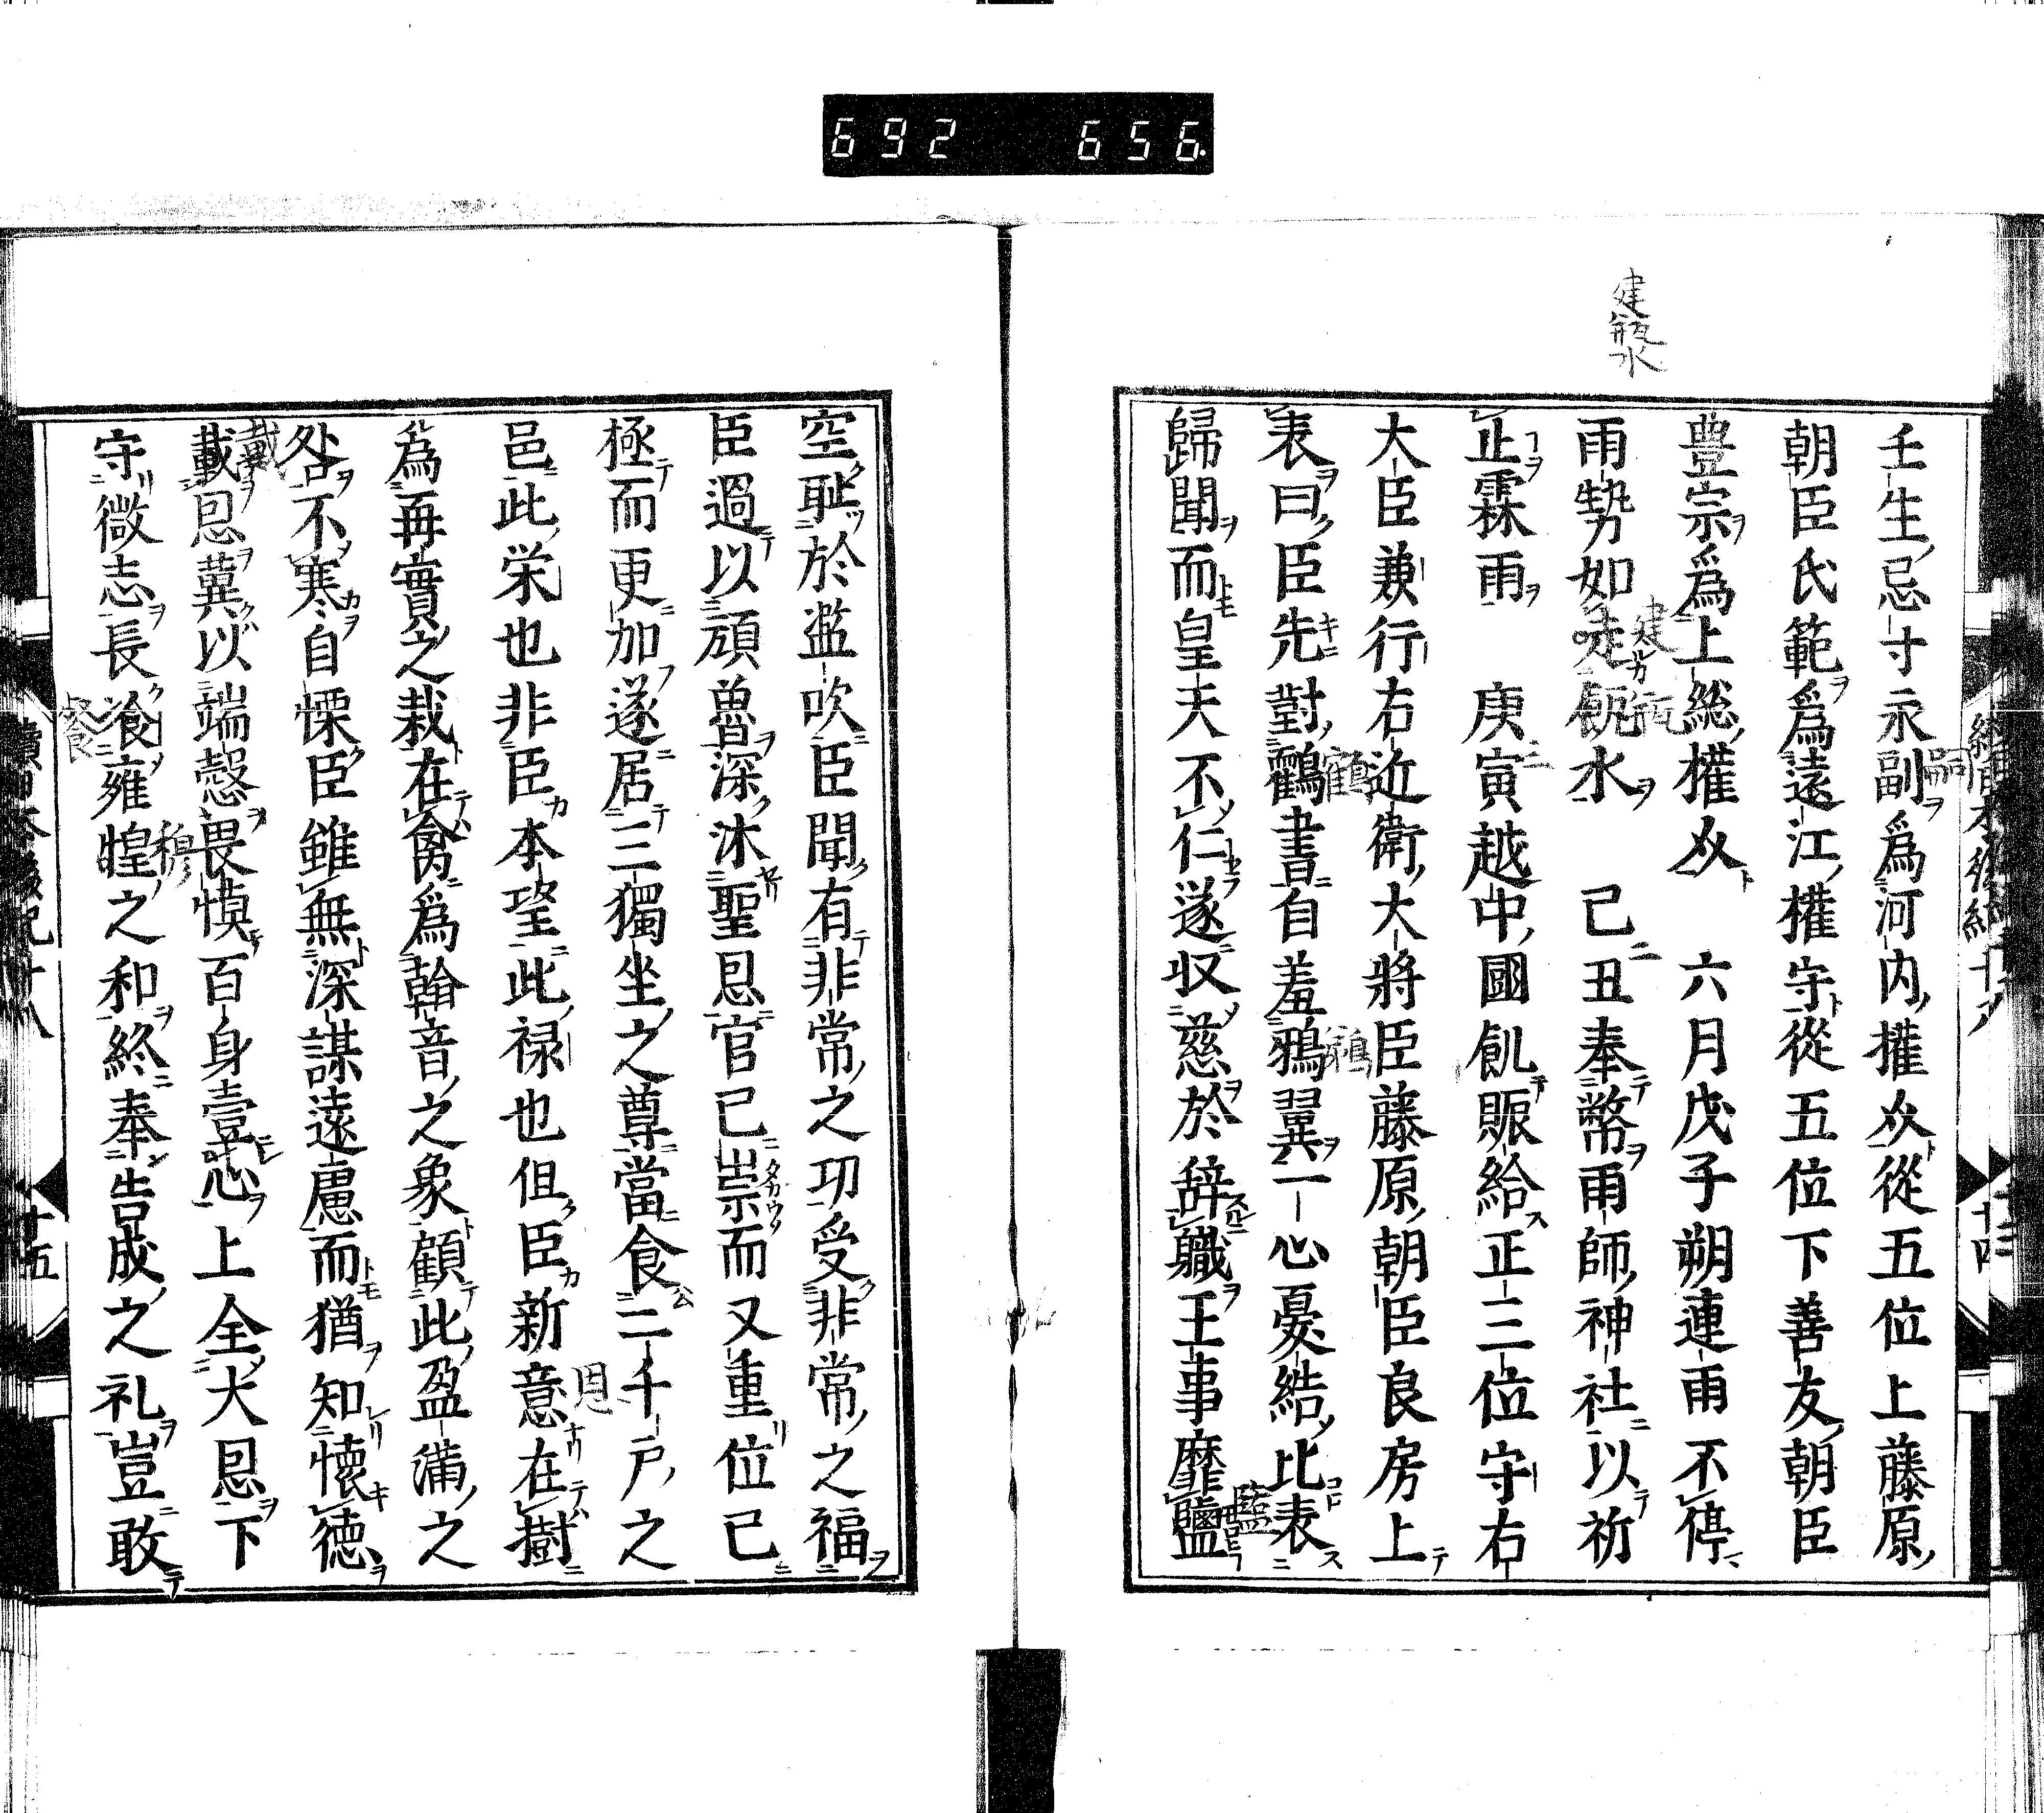 692 656
建瓶水
壬生忌寸永副爲河内權𠔥從五位上藤原
朝臣氏範爲遠江權守從五位下善友朝臣
豊宗爲上総權𠔥 六月戊子朔連雨不停
雨勢如走瓶水 己丑奉幣雨師神社以祈
止霖雨 庚寅越中國飢賑給正三位守右
大臣兼行右近衛大將臣藤原朝臣良房上
表曰臣先對鸖書自羞鵶翼一心憂結比表
歸聞而皇天不仁遂収慈於辞職王事靡盬
空耻於濫吹臣聞有非常之功受非常之福
臣過以頑魯深沐聖恩官已崇而又重位已
極而更加遂居三獨坐之尊當食二千戸之
邑此栄也非臣本望此禄也但臣新意在樹
爲再實之栽在禽爲翰音之象顧此盈滿之
咎不寒自慄臣雖無深謀遠慮而猶知懐德
載恩冀以端慤畏慎百身壹心上全大恩下
守微志長飡雍熀之和終奉告成之礼豈敢
十五